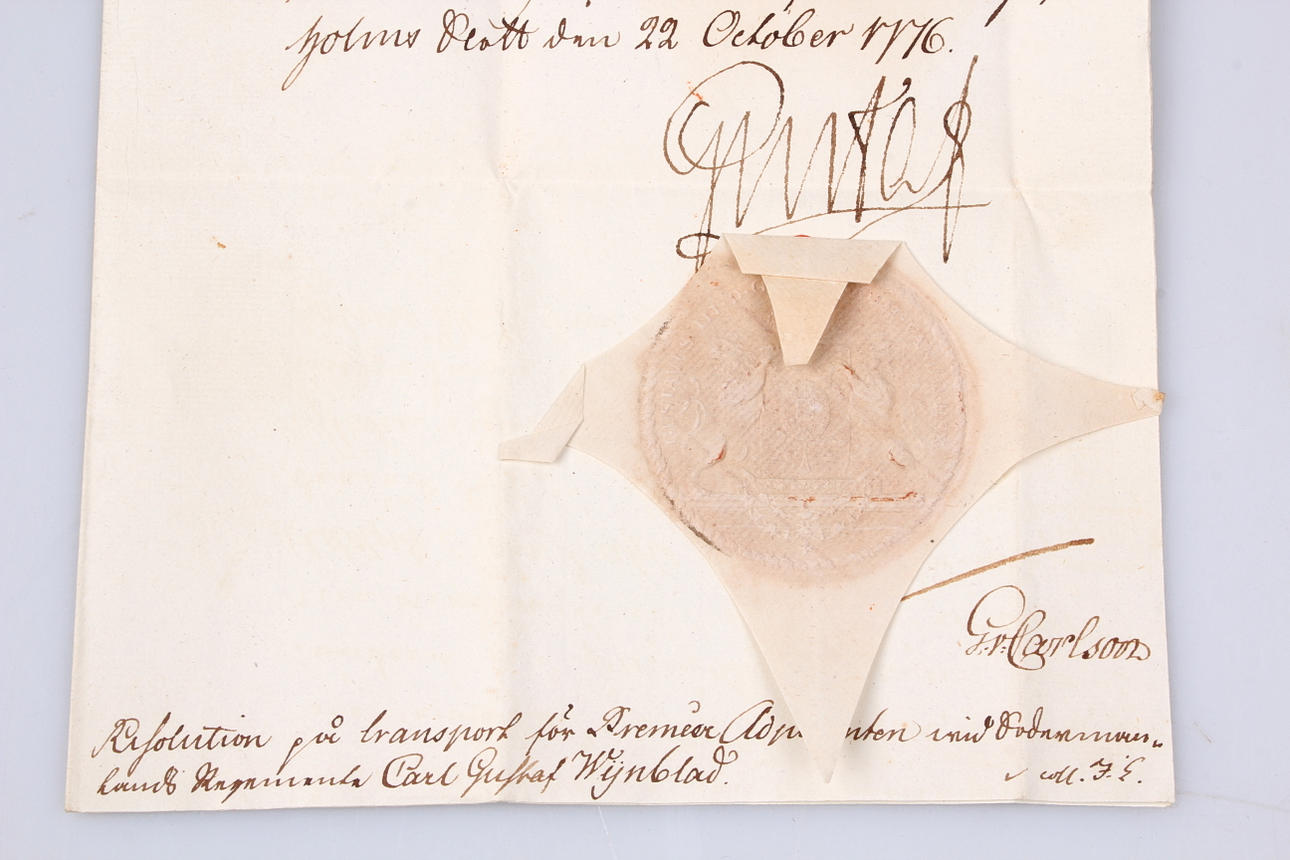 holms Slott den 22 October 1776.
Gustaf
G. v. Carlson
Resolution på transport för Premier Adju nten wid Söderman-
lands Regemente Carl Gustaf Wijnblad.
coll. J. G.